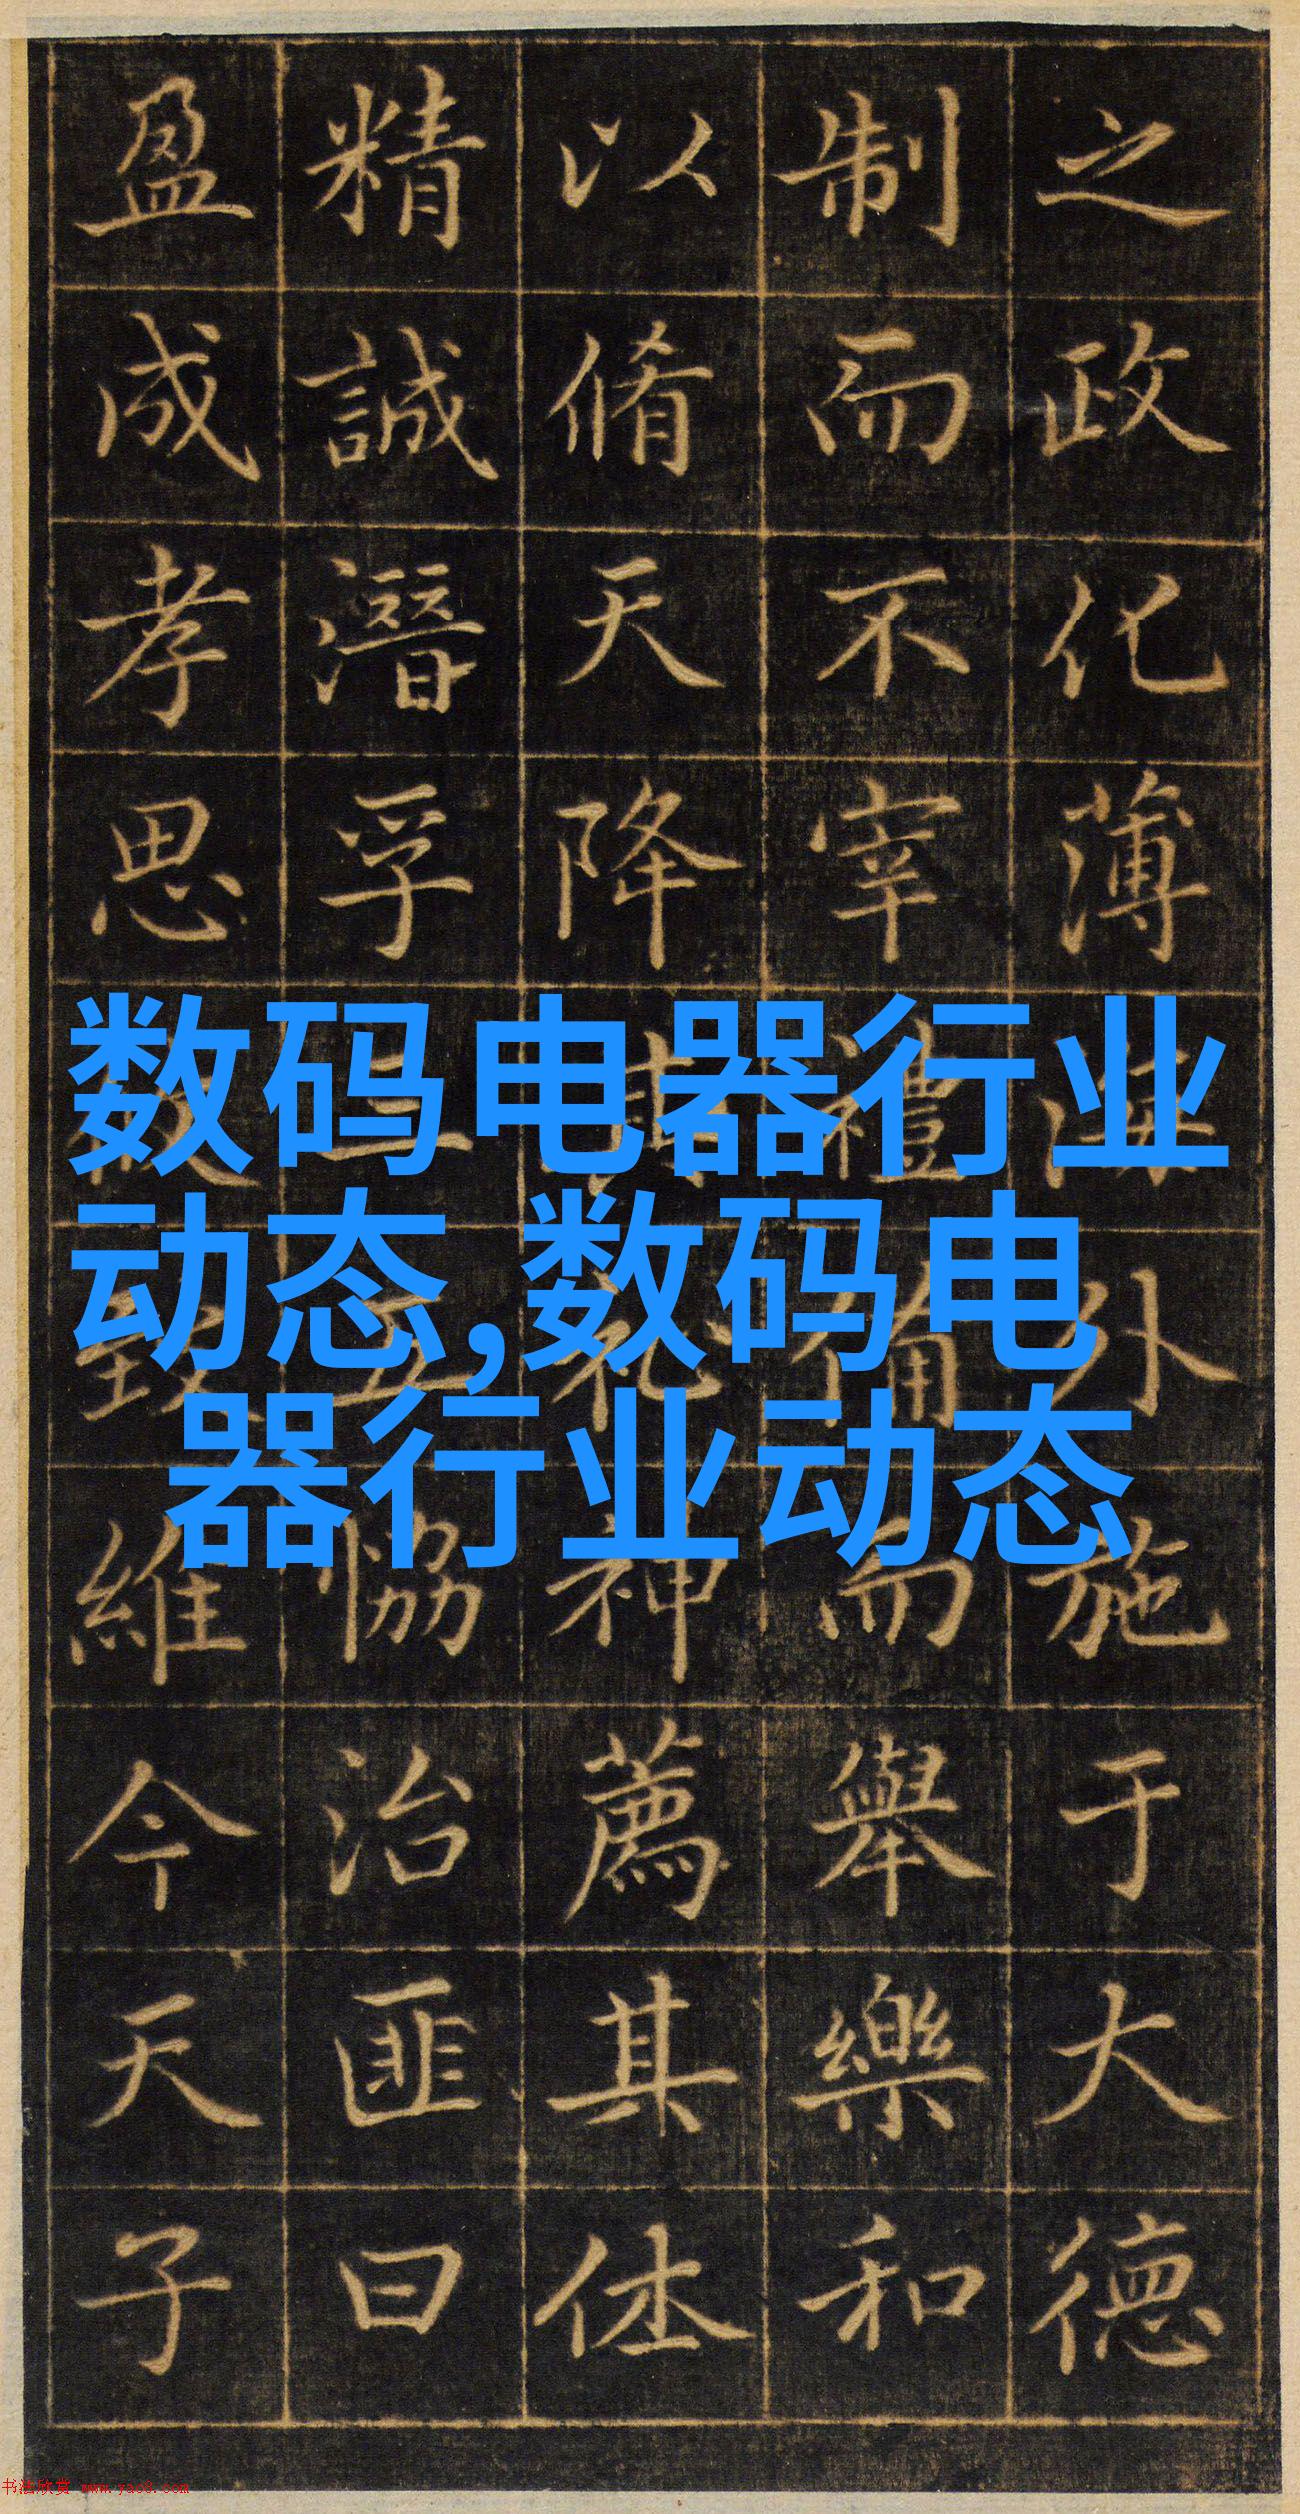 之政化薄海外施于大德
制而不宰禮備而舉樂和
以脩天降其礼神薦其体
精誠潛孚五恊治匪曰
盈成孝思致維今天子
数码电器行业
动态,数码电
器行业动态
书法欣赏 www.yac8.com